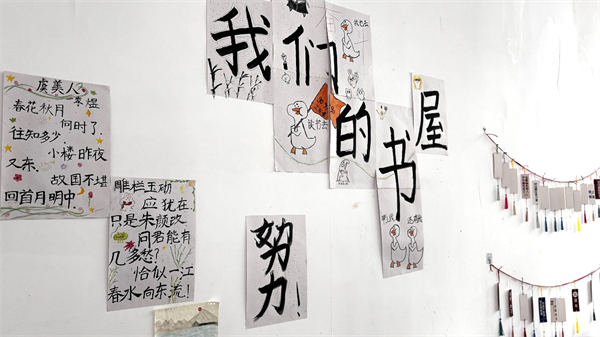 虞美人
李煜
春花秋月
何时了.
往知多少.
小楼昨夜
又东.
故国不堪
回首月明中
雕栏玉
应犹在
只是朱颜改
问君能有
几多愁?
恰似一江
春水向东流!
我们的书屋
读书去
努力!